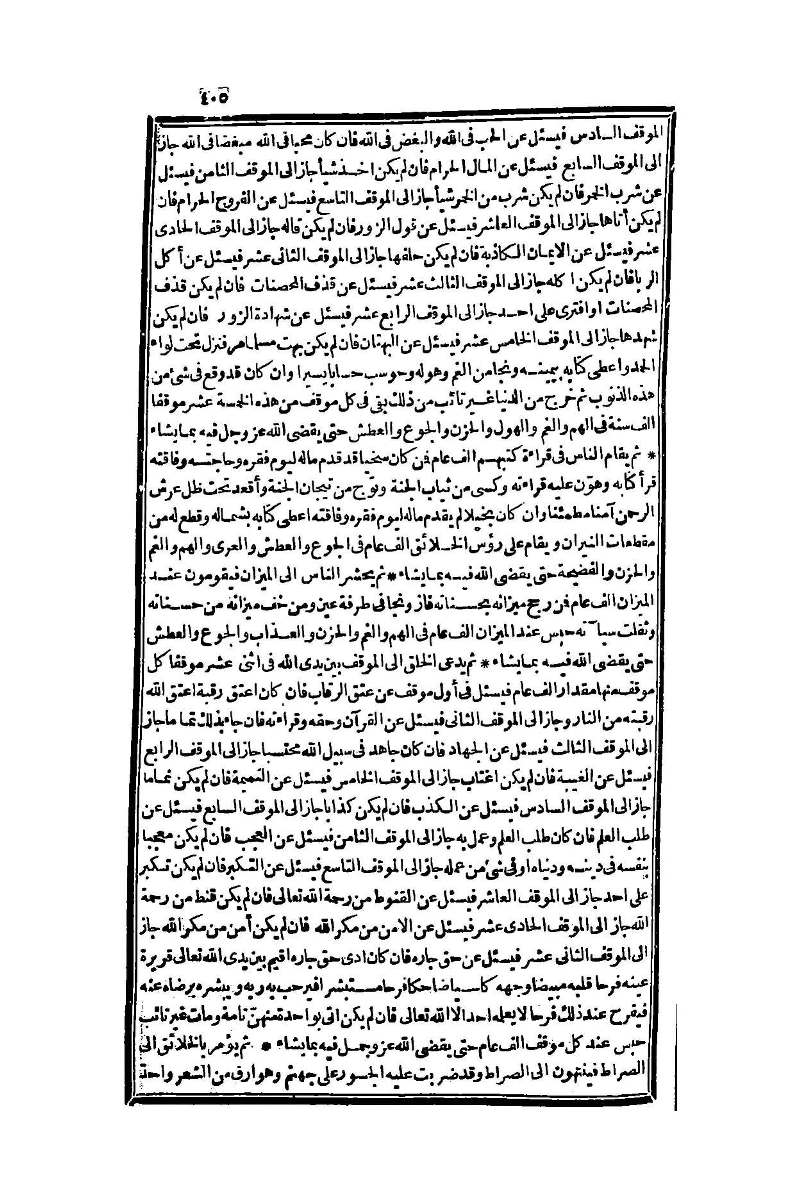 ٤٠٥
الموقف السادس فيسئل عن الحب فى الله والبغض فى الله فان كان محبا فى الله مبغضا فى الله جاز
الى الموقف السابع فيسئل عن المال الحرام فان لم يكن اخذ شيأ جاز الى الموقف الثامن فيسئل
عن شرب الخمر فان لم يكن شرب من الخمر شيأ جاز الى الموقف التاسع فيسئل عن الفروج الحرام فان
لم يكن أتاها جاز الى الموقف العاشر فيسئل عن قول الزور فان لم يكن قاله جاز الى الموقف الحادى
عشر فيسئل عن الايمان الكاذبة فان لم يكن حلفها جاز الى الموقف الثانى عشر فيسئل عن أكل
الربا فان لم يكن اكله جاز الى الموقف الثالث عشر فيسئل عن قذف المحصنات فان لم يكن قذف
المحصنات او افترى على احد جاز الى الموقف الرابع عشر فيسئل عن شهادة الزور فان لم يكن
شهدها جاز الى الموقف الخامس عشر فيسئل عن البهتان فان لم يكن بهت مسلما مر فنزل تحت لواء
الحمد واعطى كتابه بيمينه ونجا من الغم وهوله وحوسب حسابا يسيرا وان كان قد وقع فى شئ من
هذه الذنوب ثم خرج من الدنيا غير تائب من ذلك بقى فى كل موقف من هذه الخمسة عشر موقفا
الف سنة فى الهم والغم والهول والحزن والجوع والعطش حتى يقضى الله عز وجل فيه بما يشاء
* ثم يقام الناس فى قراءة كتبهم الف عام فمن كان سخيا قد قدم ماله ليوم فقره وحاجته وفاقته
قرأ كتابه وهوّن عليه قراءته وكسى من ثياب الجنة وتوج من تيجان الجنة وأقعد تحت ظل عرش
الرحمن آمنا مطمئنا وان كان بخيلا لم يقدم ماله ليوم فقره وفاقته اعطى كتابه بشماله وقطع له من
مقطعات النيران ويقام على رؤس الخلائق الف عام فى الجوع والعطش والعرى والهم والغم
والحزن والفضيحة حتى يقضى الله فيه بما يشاء * ثم يحشر الناس الى الميزان فيقومون عند
الميزان الف عام فمن رجح ميزانه بحسناته فاز ونجا فى طرفة عين ومن خف ميزانه من حسناته
وثقلت سيآته حبس عند الميزان الف عام فى الهم والغم والحزن والعذاب والجوع والعطش
حتى يقضى الله فيه بما يشاء * ثم يدعى الخلق الى الموقف بين يدى الله فى اثنى عشر موقفا كل
موقف منها مقدار الف عام فيسئل فى أول موقف عن عتق الرقاب فان كان اعتق رقبة اعتق الله
رقبته من النار وجاز الى الموقف الثانى فيسئل عن القرآن وحقه وقراءته فان جاء بذلك تماما جاز
الى الموقف الثالث فيسئل عن الجهاد فان كان جاهد فى سبيل الله محتسبا جاز الى الموقف الرابع
فيسئل عن الغيبة فان لم يكن اغتاب جاز الى الموقف الخامس فيسئل عن النميمة فان لم يكن نماما
جاز الى الموقف السادس فيسئل عن الكذب فان لم يكن كذابا جاز الى الموقف السابع فيسئل عن
طلب العلم فان كان طلب العلم وعمل به جاز الى الموقف الثامن فيسئل عن العجب فان لم يكن معجبا
بنفسه فى دينه ودنياه او فى شئ من عمله جاز الى الموقف التاسع فيسئل عن التكبر فان لم يكن تكبر
على احد جاز الى الموقف العاشر فيسئل عن القنوط من رحمة الله تعالى فان لم يكن قنط من رحمة
الله جاز الى الموقف الحادى عشر فيسئل عن الامن من مكر الله فان لم يكن أمن من مكر الله جاز
الى الموقف الثانى عشر فيسئل عن حق جاره فان كان ادى حق جاره اقيم بين يدى الله تعالى قريرة
عينه فرحا قلبه مبيضا وجهه كاسيا ضاحكا فرحا مستبشرا فيرحب به ربه ويبشره برضاه عنه
فيفرح عند ذلك فرحا لا يعلمه احد الا الله تعالى فان لم يكن اتى بواحدة منهنّ تامة ومات غير تائب
حبس عند كل موقف الف عام حتى يقضى الله عز وجل فيه بما يشاء * ثم يؤمر بالخلائق الى
الصراط فينتهون الى الصراط وقد ضربت عليه الجسور على جهنم وهو ارق من الشعر واحد